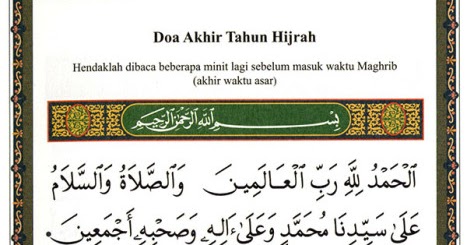 Doa Akhir Tahun Hijrah
Hendaklah dibaca beberapa minit lagi sebelum masuk waktu Maghrib
(akhir waktu asar)
بِسْمِ اللَّهِ الرَّحْمَٰنِ الرَّحِيمِ
اَلْحَمْدُ لِلَّهِ رَبِّ الْعَالَمِينَ وَالصَّلَاةُ وَالسَّلَامُ
عَلَى سَيِّدِنَا مُحَمَّدٍ وَعَلَى ءَالِهِ وَصَحْبِهِ أَجْمَعِينَ.